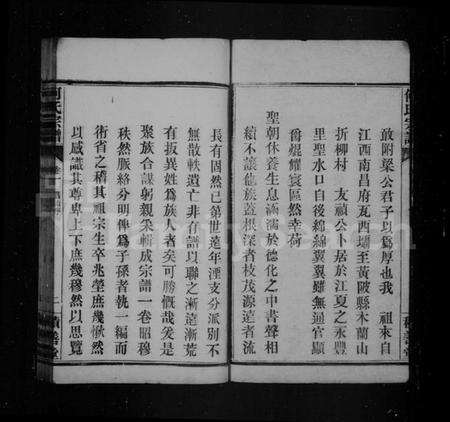 敢附梁公君子以爲厚也我 祖來自
江西南昌府瓦西壩至黃陂縣木蘭山
折柳村 友禎公卜居於江夏之永豐
里里水口自後綿綿翼翼雖無通官顯
爵焜耀寰區然幸荷
聖朝休養生息涵濡於德化之中書聲相
續不讓他族蓋根深者枝茂源遠者流
長有固然已第世遠年湮支分派別不
無散軼遺亡非有譜以聯之漸遠漸荒
有扳異姓爲族人者矣可勝慨哉爰是
聚族合謀躬親釆輯成宗譜一卷昭穆
秩然脈絡分明俾爲子孫者執一編而
術省之稽其祖宗生卒兆塋庶幾愀然
以感識其尊卑上下庶幾穆然以思覽
何氏宗譜